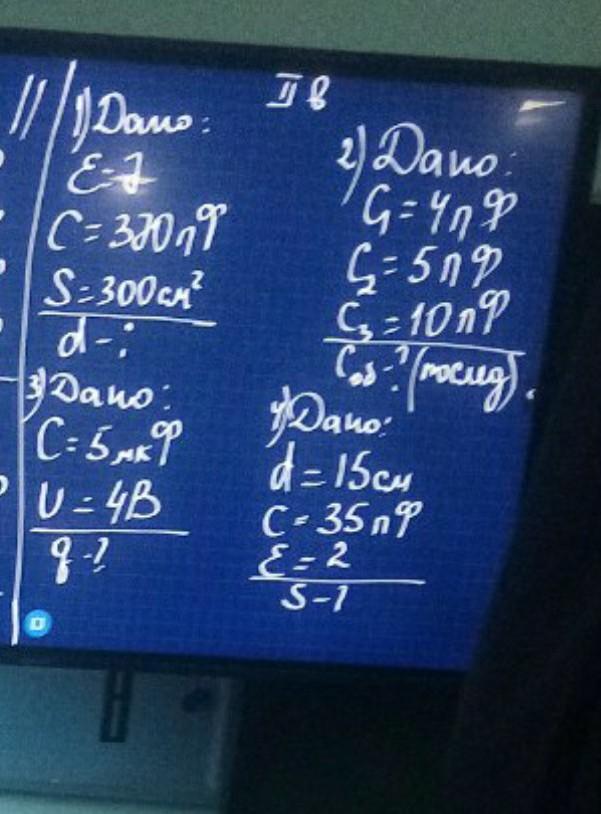 II в
1) Дано:
C = 320 пФ
S = 300 см²
d - ?
2) Дано:
C₁ = 4 пФ
C₂ = 5 пФ
C₃ = 10 пФ
Cоб - ? (послед).
3) Дано:
C = 5 мкФ
U = 4В
q - ?
4) Дано:
d = 15 см
C = 35 пФ
ε = 2
S - ?